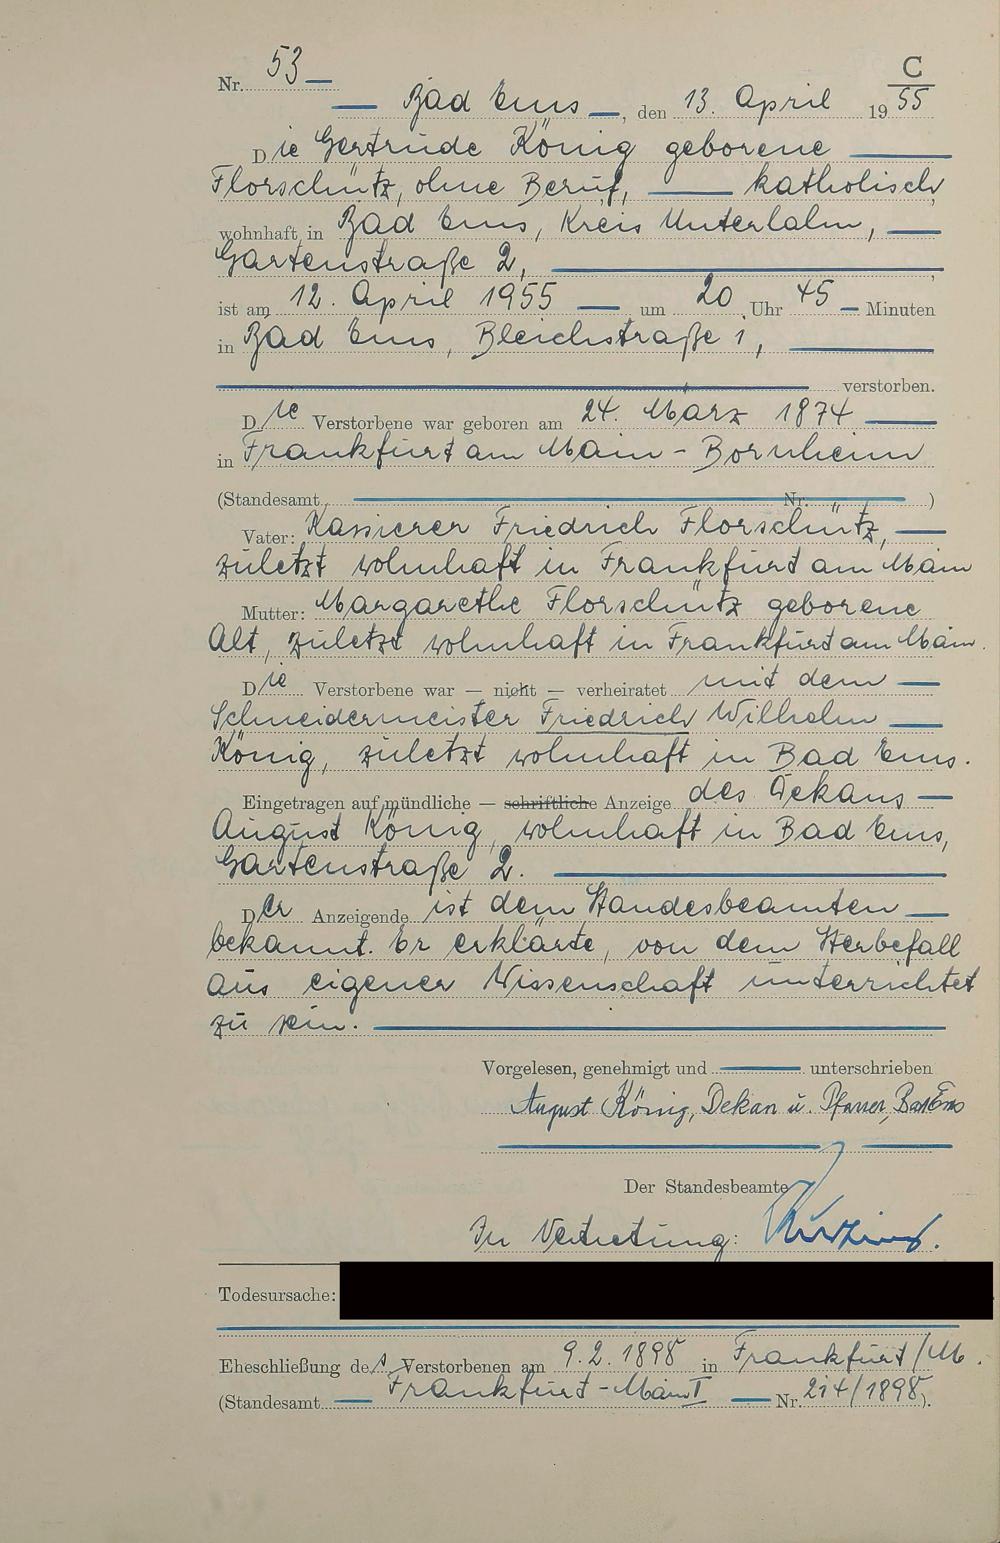 C
Nr. 53
Bad Ems, den 13. April 1955
Die Gertrude König geborene
Florschütz, ohne Beruf, katholisch
wohnhaft in Bad Ems, Kreis Unterlahn,
Gartenstraße 2,
ist am 12. April 1955 um 20 Uhr 45 Minuten
in Bad Ems, Bleichstraße 1,
verstorben.
Die Verstorbene war geboren am 24. März 1874
in Frankfurt am Main - Bornheim
(Standesamt Nr. )
Vater: Kassierer Friedrich Florschütz,
zuletzt wohnhaft in Frankfurt am Main
Mutter: Margarethe Florschütz geborene
Alt, zuletzt wohnhaft in Frankfurt am Main.
Die Verstorbene war — nicht — verheiratet mit dem
Schneidermeister Friedrich Wilhelm
König, zuletzt wohnhaft in Bad Ems.
Eingetragen auf mündliche — schriftliche Anzeige des Dekans
August König, wohnhaft in Bad Ems,
Gartenstraße 2.
Der Anzeigende ist dem Standesbeamten
bekannt. Er erklärte, von dem Sterbefall
aus eigener Wissenschaft unterrichtet
zu sein.
Vorgelesen, genehmigt und unterschrieben
August König, Dekan u. Pfarrer, Bad Ems
Der Standesbeamte
In Vertretung:
Todesursache:
Eheschließung der Verstorbenen am 9.2.1898 in Frankfurt/M.
(Standesamt Frankfurt-Main I Nr. 214/1898).